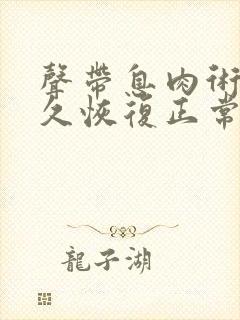 聲帶息肉術
久恢復正常
龍子湖